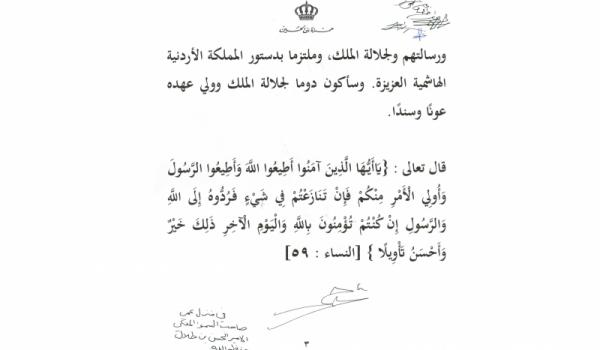 ورسالتهم ولجلالة الملك، وملتزما بدستور المملكة الأردنية
الهاشمية العزيزة. وسأكون دوما لجلالة الملك وولي عهده
عونًا وسندًا.
قال تعالى : {يَاأَيُّهَا الَّذِينَ آمَنُوا أَطِيعُوا اللَّهَ وَأَطِيعُوا الرَّسُولَ
وَأُولِي الْأَمْرِ مِنْكُمْ فَإِنْ تَنَازَعْتُمْ فِي شَيْءٍ فَرُدُّوهُ إِلَى اللَّهِ
وَالرَّسُولِ إِنْ كُنْتُمْ تُؤْمِنُونَ بِاللَّهِ وَالْيَوْمِ الْآخِرِ ذَلِكَ خَيْرٌ
وَأَحْسَنُ تَأْوِيلًا } [النساء : ٥٩]
في منزل عمي
صاحب السمو الملكي
الأمير الحسن بن طلال
٣